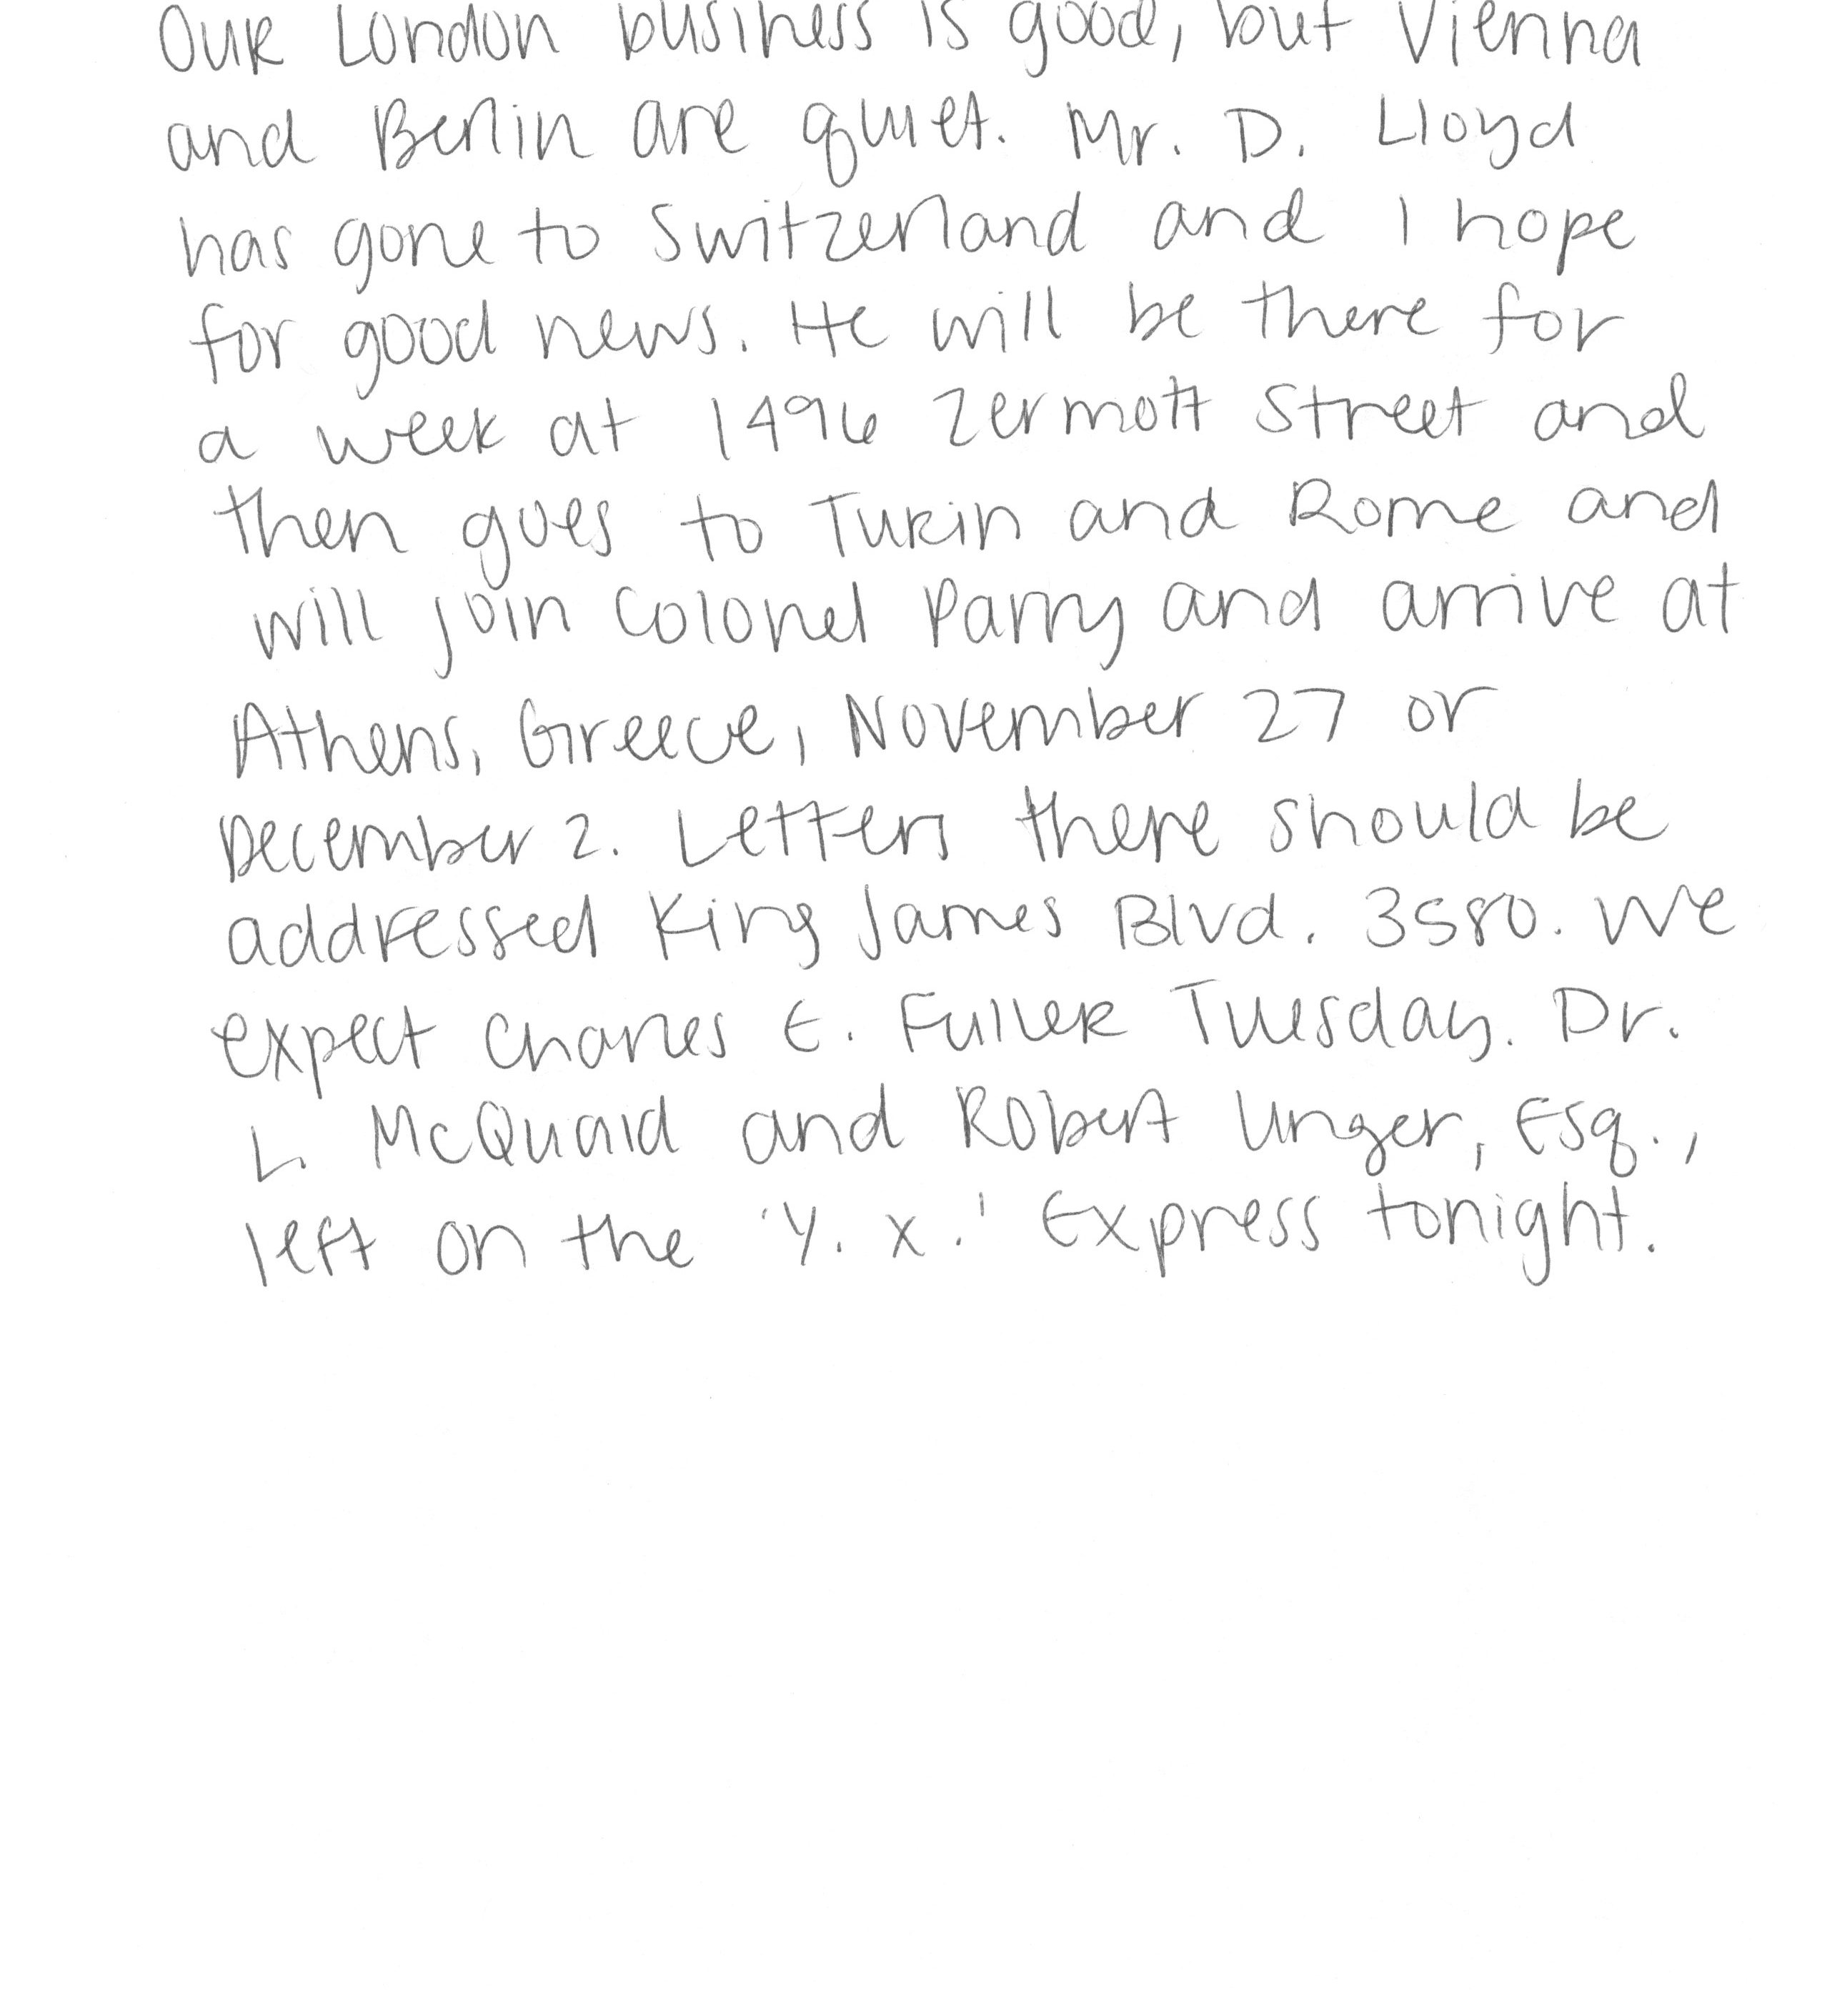 Our London business is good, but Vienna
and Berlin are quiet. Mr. D. Lloyd
has gone to Switzerland and I hope
for good news. He will be there for
a week at 1496 Zermott Street and
then goes to Turin and Rome and
will join Colonel Parry and arrive at
Athens, Greece, November 27 or
December 2. Letters there should be
addressed King James Blvd. 3580. We
expect Charles E. Fuller Tuesday. Dr.
L. McQuaid and Robert Unger, Esq.,
left on the 'Y. X.' Express tonight.